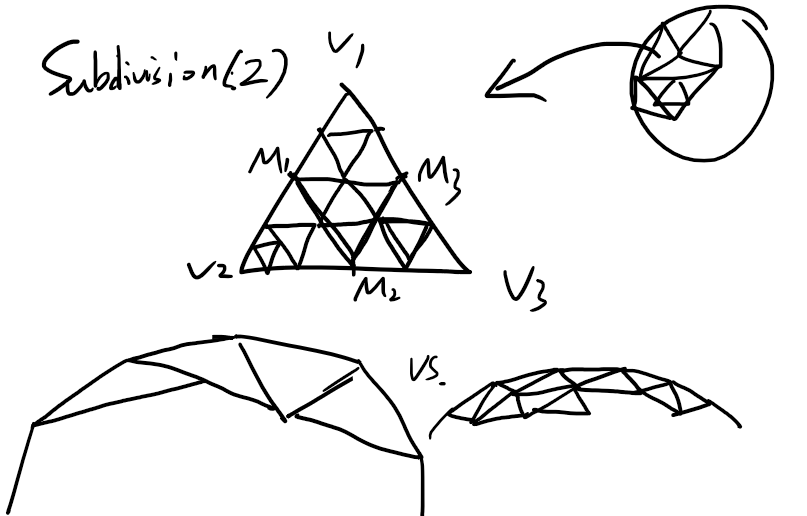 Subdivision(2)
V1
M1
M3
V2
M2
V3
vs.